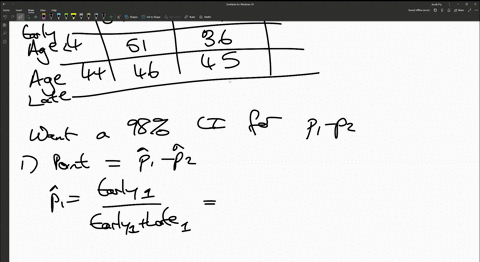 Early
Age 4 61 36
Age 44 46 45
Late
Want a 98% CI for p₁-p₂
1) Point = p̂₁-p̂₂
p̂₁ = Early₁ / Early₁+Late₁ =